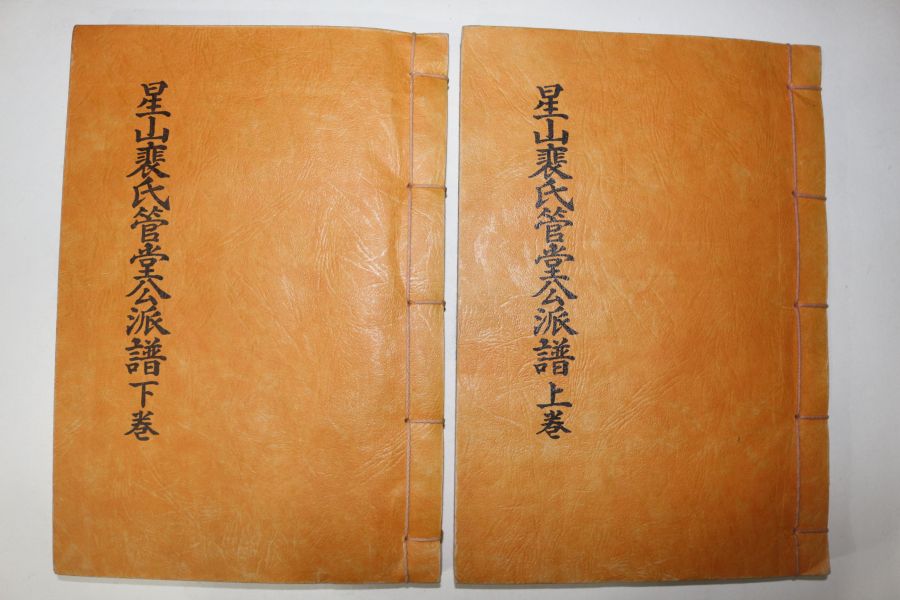 星山裵氏管堂公派譜 上巻
星山裵氏管堂公派譜 下巻